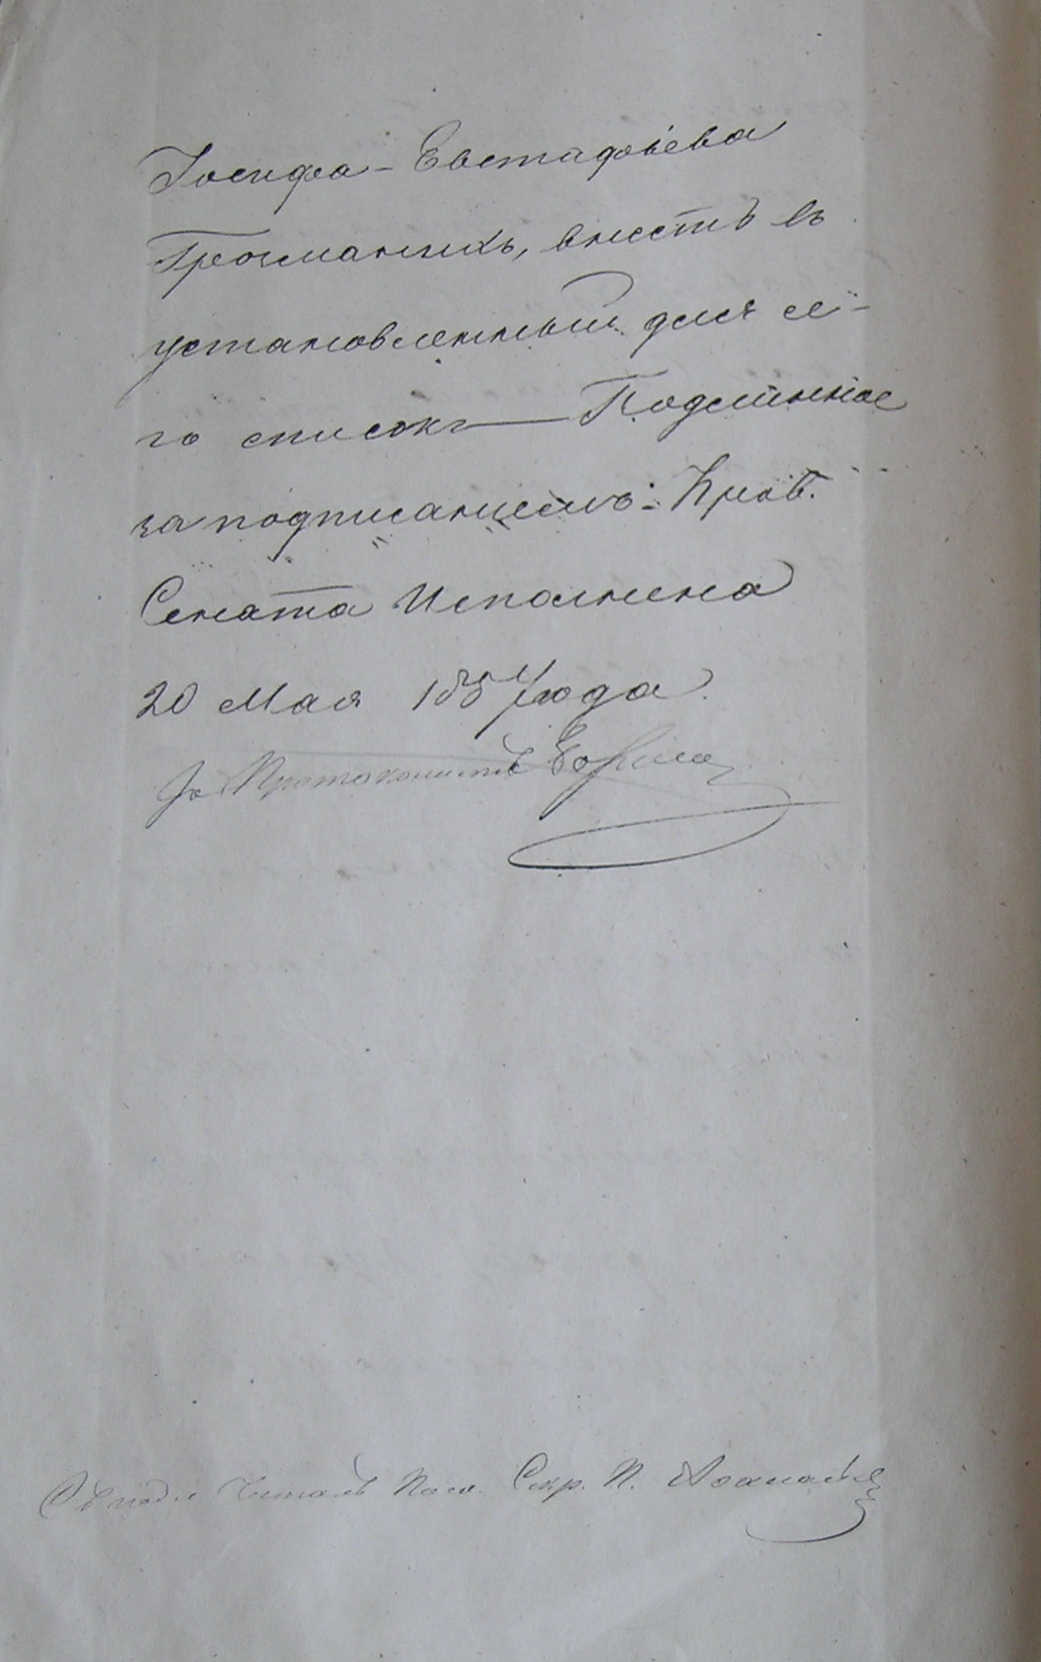 Іосифа-Евстафьева
внесть въ
установленный для се-
го списокъ Подлинное
за подписаніемъ: Прав.
Сената Исполнена
20 Мая 1857 года
За Протоколиста
Съ подл. Читалъ Пом. Секр. П.